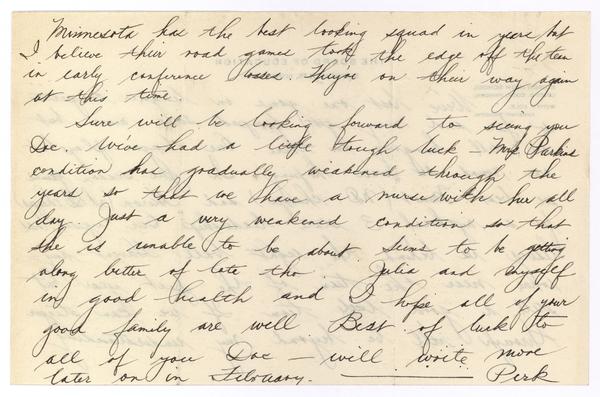 Minnesota has the best looking squad in years but
I believe their road games took the edge off the team
in early conference losses. They're on their way again
at this time.
Sure will be looking forward to seeing you
Doc. We've had a little tough luck – Mrs. Parkins
condition has gradually weakened through the
years so that we have a nurse with her all
day. Just a very weakened condition so that
she is unable to be about. Seems to be getting
along better of late tho. Julia and myself
in good health and I hope all of your
good family are well. Best of luck to
all of you Doc – will write more
later on in February. Perk